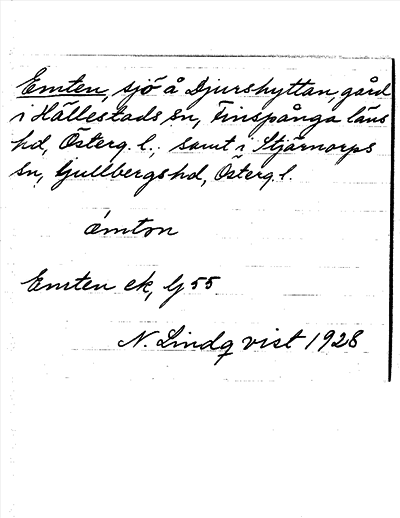 Emten, sjö å Djurshyttan, gård
i Hällestads sn, Finspånga läns
hd, Österg. l., samt i Stjärnorps
sn, Gullbergs hd, Österg. l.
émton
Emten ek, bj 55
N. Lindqvist 1928